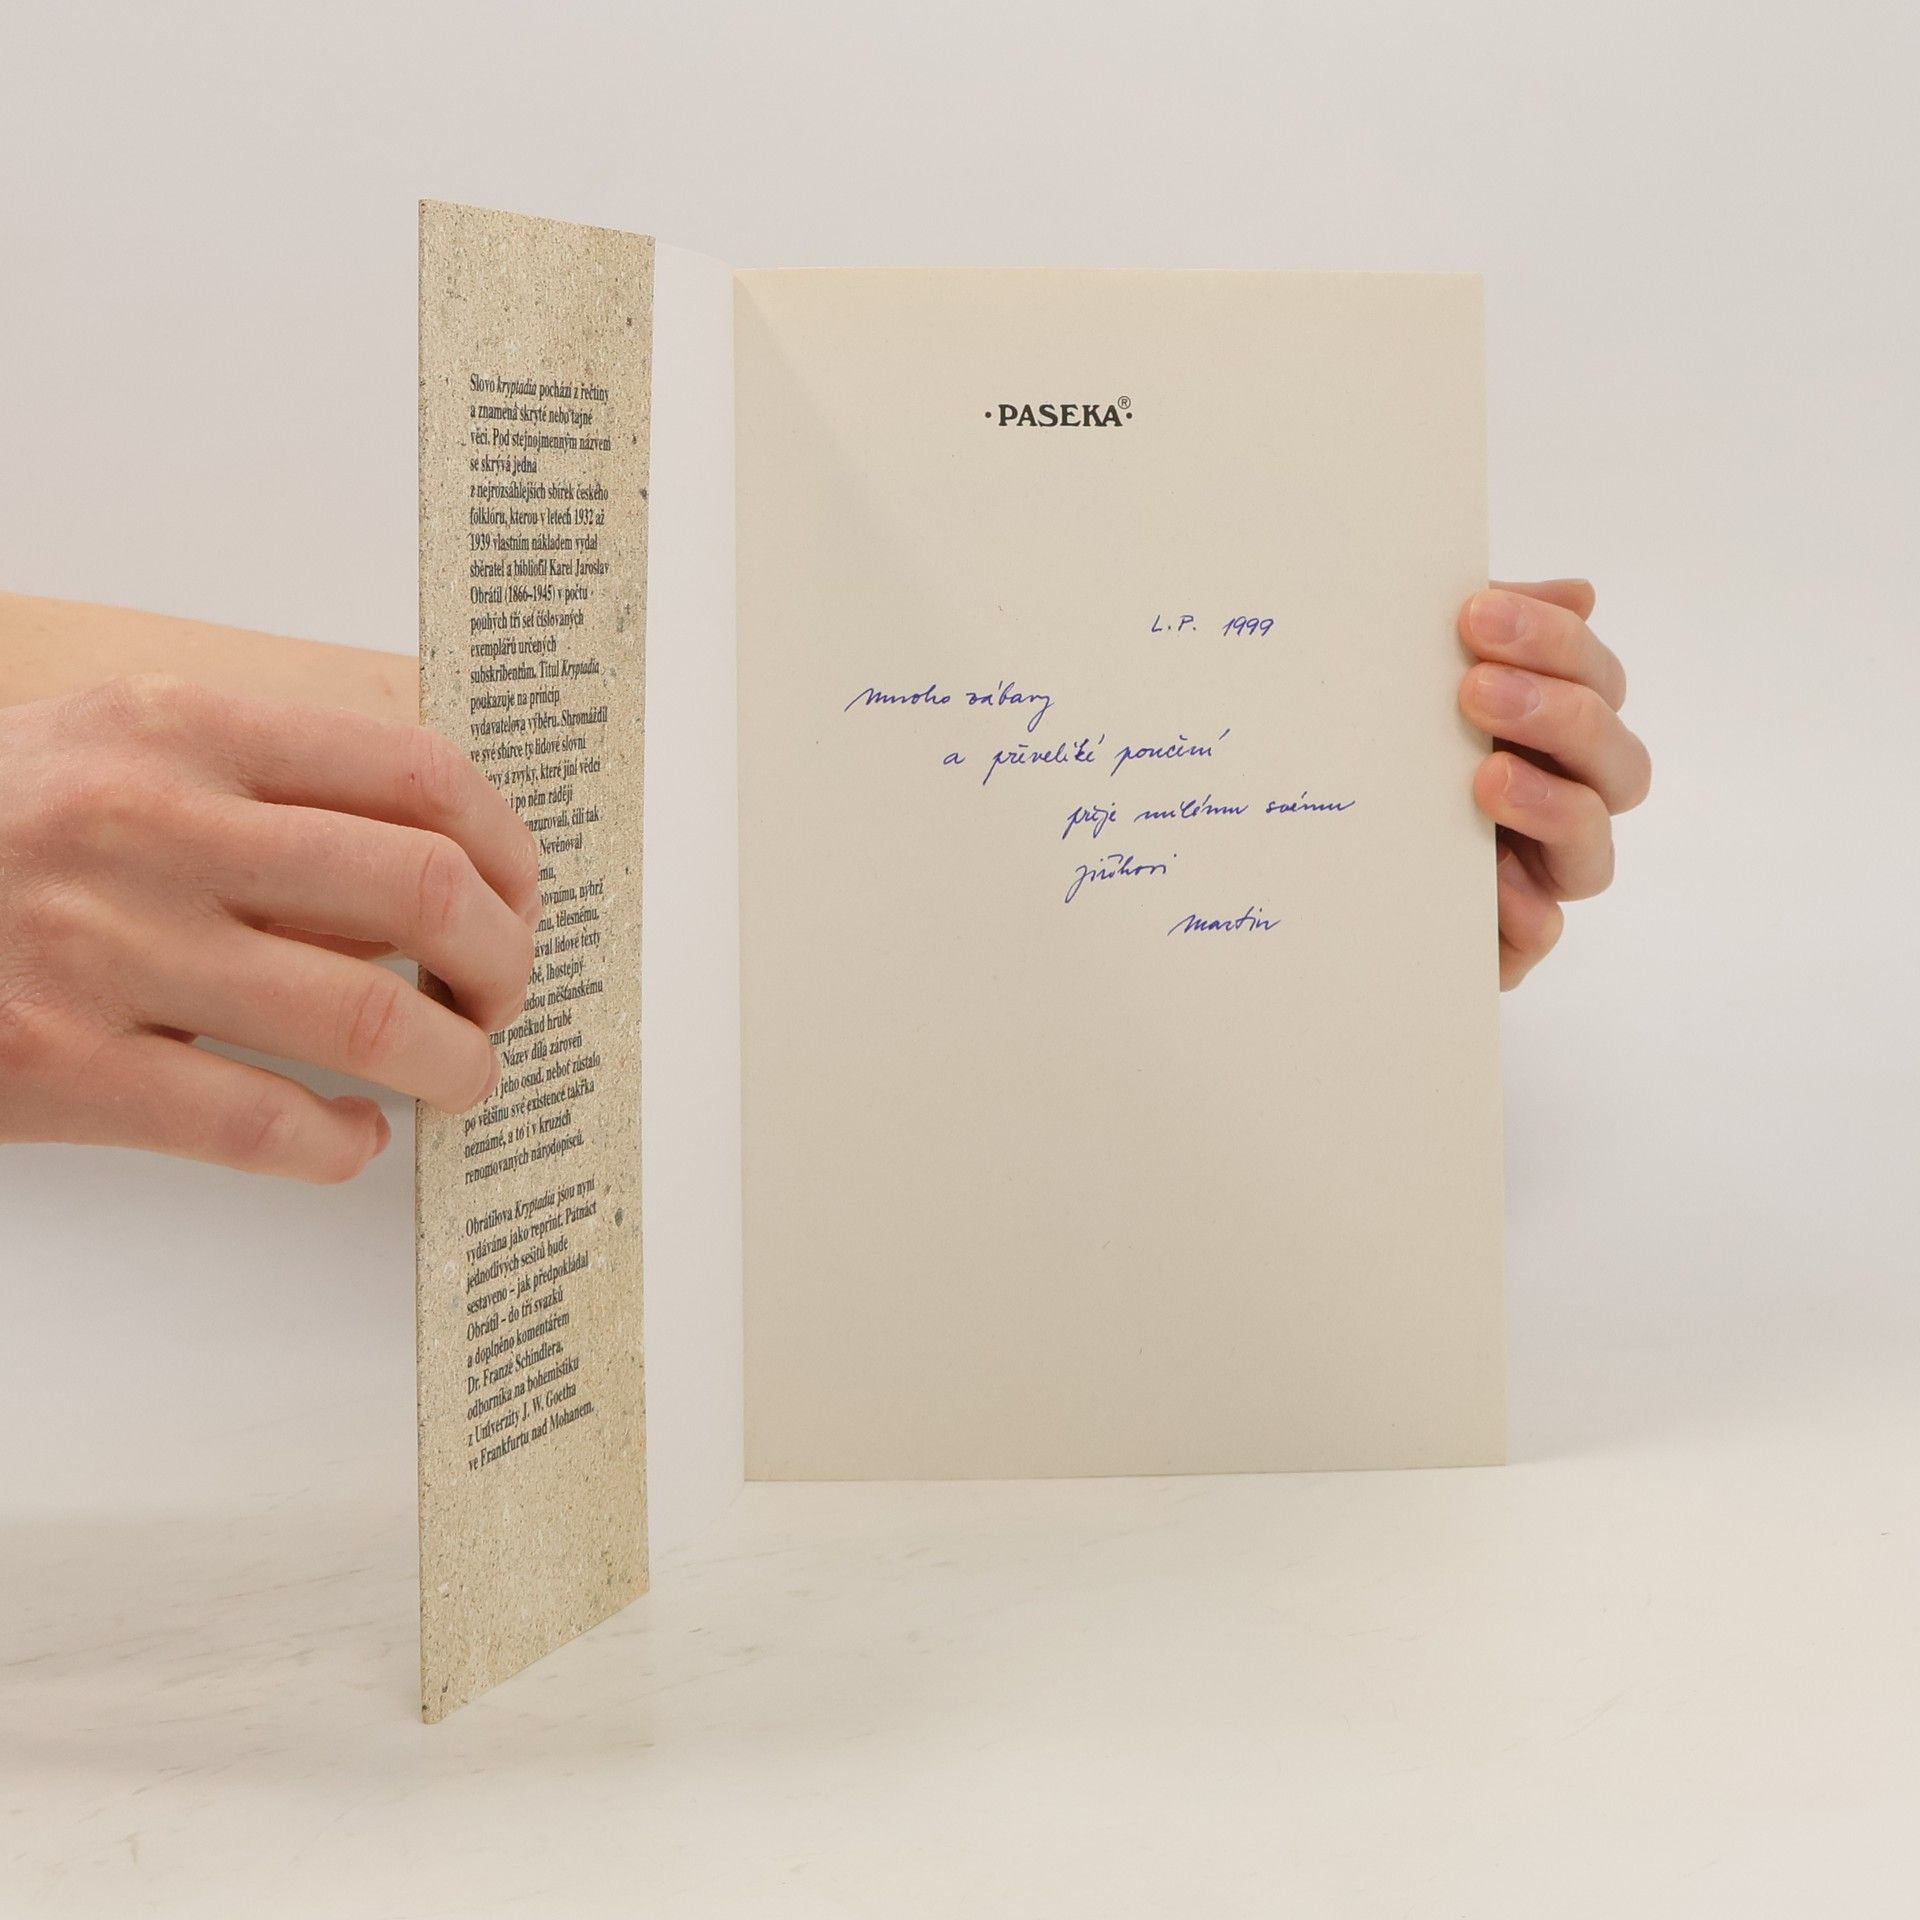 Slovo kryptadia pochází z řečtiny
a znamená skryté nebo tajné
věci. Pod stejnojmenným názvem
se skrývá jedna
z nejrozsáhlejších sbírek českého
folklóru, kterou v letech 1932 až
1939 vlastním nákladem vydal
sběratel a bibliofil Karel Jaroslav
Obrátil (1866–1945) v počtu
pouhých tří set číslovaných
exemplářů určených
subskribentům. Titul Kryptadia
poukazuje na princip
vydavatelova výběru. Shromáždil
ve své sbírce ty lidové slovní
a zvyky, které jiní vědci
i po něm raději
čili tak
Nevěnoval
nýbrž
tělesnému,
lidové texty
lhostejný
měšťanskému
poněkud hrubě
Název díla zároveň
i jeho osud, neboť zůstalo
po většinu své existence takřka
neznámé, a to i v kruzích
renomovaných národopisců.
Obrátilova Kryptadia jsou nyní
vydávána jako reprint. Patnáct
jednotlivých sešitů bude
sestaveno – jak předpokládal
Obrátil – do tří svazků
a doplněno komentářem
Dr. Franze Schindlera,
odborníka na bohemistiku
z Univerzity J. W. Goetha
ve Frankfurtu nad Mohanem.
·PASEKA®·
L.P. 1999
Mnoho zábavy
a převeliké poučení
přeje milému svému
Jiříkovi
Martin